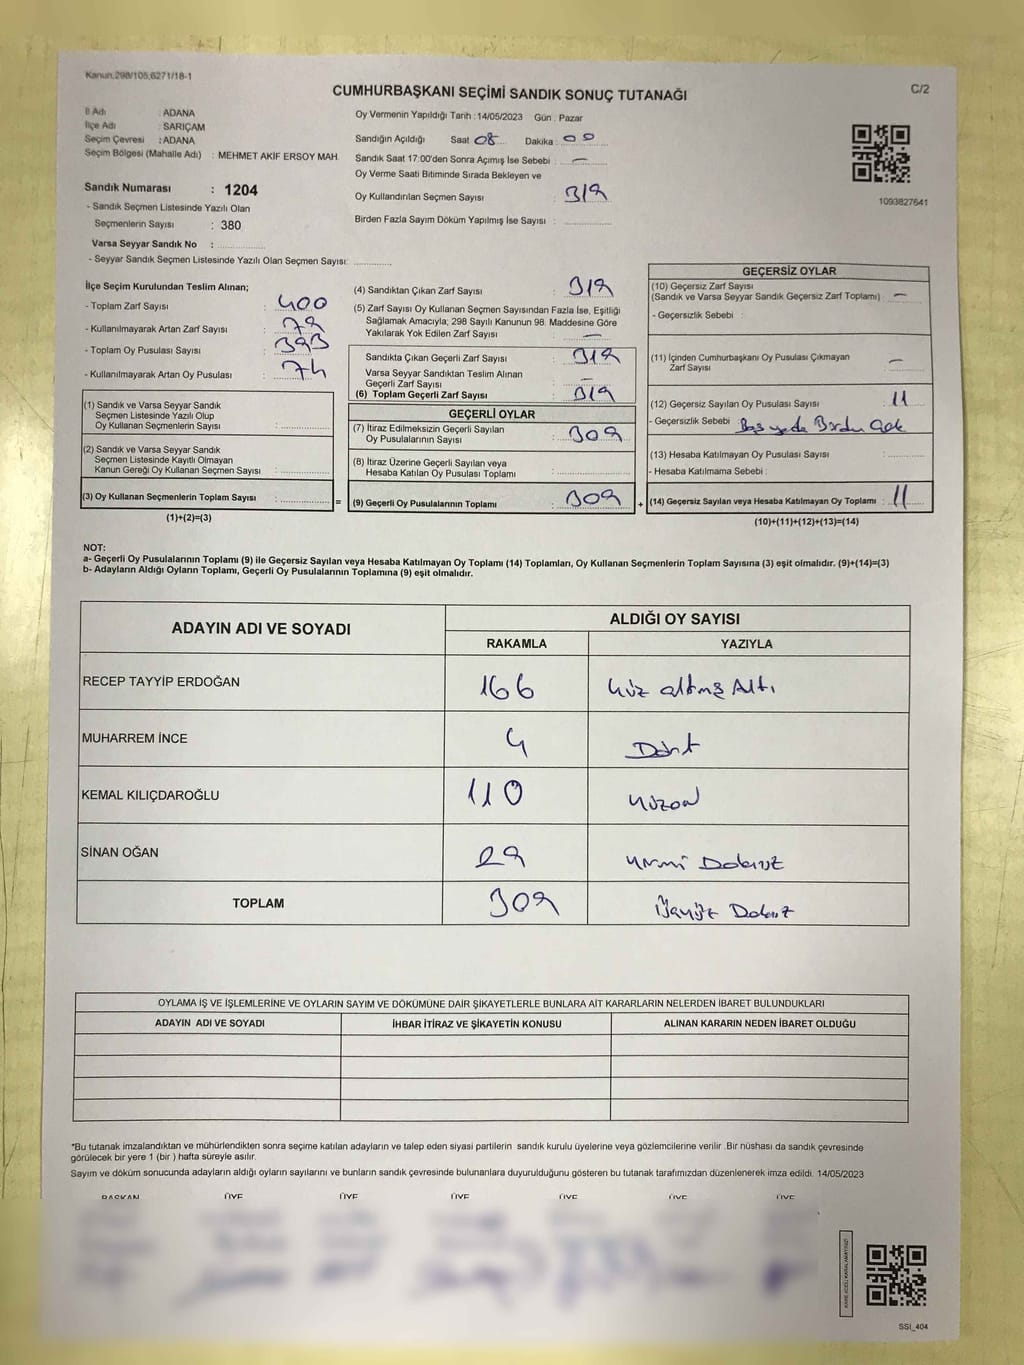 Kanun.298/105,6271/18-1
CUMHURBAŞKANI SEÇİMİ SANDIK SONUÇ TUTANAĞI
C/2
İl Adı : ADANA
İlçe Adı : SARIÇAM
Seçim Çevresi : ADANA
Seçim Bölgesi (Mahalle Adı) : MEHMET AKİF ERSOY MAH.
Sandık Numarası : 1204
- Sandık Seçmen Listesinde Yazılı Olan
Seçmenlerin Sayısı : 380
Varsa Seyyar Sandık No :
- Seyyar Sandık Seçmen Listesinde Yazılı Olan Seçmen Sayısı:
Oy Vermenin Yapıldığı Tarih : 14/05/2023 Gün : Pazar
Sandığın Açıldığı Saat 08 Dakika : 00
Sandık Saat 17:00'den Sonra Açımış İse Sebebi : —
Oy Verme Saati Bitiminde Sırada Bekleyen ve
Oy Kullandırılan Seçmen Sayısı : 319
Birden Fazla Sayım Döküm Yapılmış İse Sayısı :
1093827641
İlçe Seçim Kurulundan Teslim Alınan;
- Toplam Zarf Sayısı : 400
- Kullanılmayarak Artan Zarf Sayısı : 79
- Toplam Oy Pusulası Sayısı : 393
- Kullanılmayarak Artan Oy Pusulası : 74
(1) Sandık ve Varsa Seyyar Sandık
Seçmen Listesinde Yazılı Olup
Oy Kullanan Seçmenlerin Sayısı :
(2) Sandık ve Varsa Seyyar Sandık
Seçmen Listesinde Kayıtlı Olmayan
Kanun Gereği Oy Kullanan Seçmen Sayısı :
(3) Oy Kullanan Seçmenlerin Toplam Sayısı :
(1)+(2)=(3)
=
(4) Sandıktan Çıkan Zarf Sayısı : 319
(5) Zarf Sayısı Oy Kullanan Seçmen Sayısından Fazla İse, Eşitliği
Sağlamak Amacıyla; 298 Sayılı Kanunun 98. Maddesine Göre
Yakılarak Yok Edilen Zarf Sayısı : —
Sandıkta Çıkan Geçerli Zarf Sayısı : 319
Varsa Seyyar Sandıktan Teslim Alınan
Geçerli Zarf Sayısı : —
(6) Toplam Geçerli Zarf Sayısı : 319
GEÇERLİ OYLAR
(7) İtiraz Edilmeksizin Geçerli Sayılan
Oy Pusulalarının Sayısı : 309
(8) İtiraz Üzerine Geçerli Sayılan veya
Hesaba Katılan Oy Pusulası Toplamı :
(9) Geçerli Oy Pusulalarının Toplamı : 309
+
GEÇERSİZ OYLAR
(10) Geçersiz Zarf Sayısı
(Sandık ve Varsa Seyyar Sandık Geçersiz Zarf Toplamı) : —
- Geçersizlik Sebebi :
(11) İçinden Cumhurbaşkanı Oy Pusulası Çıkmayan
Zarf Sayısı : —
(12) Geçersiz Sayılan Oy Pusulası Sayısı : 11
- Geçersizlik Sebebi : Boş yada Birden Çok
(13) Hesaba Katılmayan Oy Pusulası Sayısı :
- Hesaba Katılmama Sebebi :
(14) Geçersiz Sayılan veya Hesaba Katılmayan Oy Toplamı : 11
(10)+(11)+(12)+(13)=(14)
NOT:
a- Geçerli Oy Pusulalarının Toplamı (9) ile Geçersiz Sayılan veya Hesaba Katılmayan Oy Toplamı (14) Toplamları, Oy Kullanan Seçmenlerin Toplam Sayısına (3) eşit olmalıdır. (9)+(14)=(3)
b- Adayların Aldığı Oyların Toplamı, Geçerli Oy Pusulalarının Toplamına (9) eşit olmalıdır.
ADAYIN ADI VE SOYADI ALDIĞI OY SAYISI
RAKAMLA YAZIYLA
RECEP TAYYİP ERDOĞAN 166 Yüz altmış Altı
MUHARREM İNCE 4 Dört
KEMAL KILIÇDAROĞLU 110 Yüzon
SİNAN OĞAN 29 Yirmi Dokuz
TOPLAM 309 Üçyüz Dokuz
OYLAMA İŞ VE İŞLEMLERİNE VE OYLARIN SAYIM VE DÖKÜMÜNE DAİR ŞİKAYETLERLE BUNLARA AİT KARARLARIN NELERDEN İBARET BULUNDUKLARI
ADAYIN ADI VE SOYADI İHBAR İTİRAZ VE ŞİKAYETİN KONUSU ALINAN KARARIN NEDEN İBARET OLDUĞU
*Bu tutanak imzalandıktan ve mühürlendikten sonra seçime katılan adayların ve talep eden siyasi partilerin sandık kurulu üyelerine veya gözlemcilerine verilir .Bir nüshası da sandık çevresinde
görülecek bir yere 1 (bir ) hafta süreyle asılır.
Sayım ve döküm sonucunda adayların aldığı oyların sayılarını ve bunların sandık çevresinde bulunanlara duyurulduğunu gösteren bu tutanak tarafımızdan düzenlenerek imza edildi. 14/05/2023
BAŞKAN ÜYE ÜYE ÜYE ÜYE ÜYE ÜYE
SSI_404